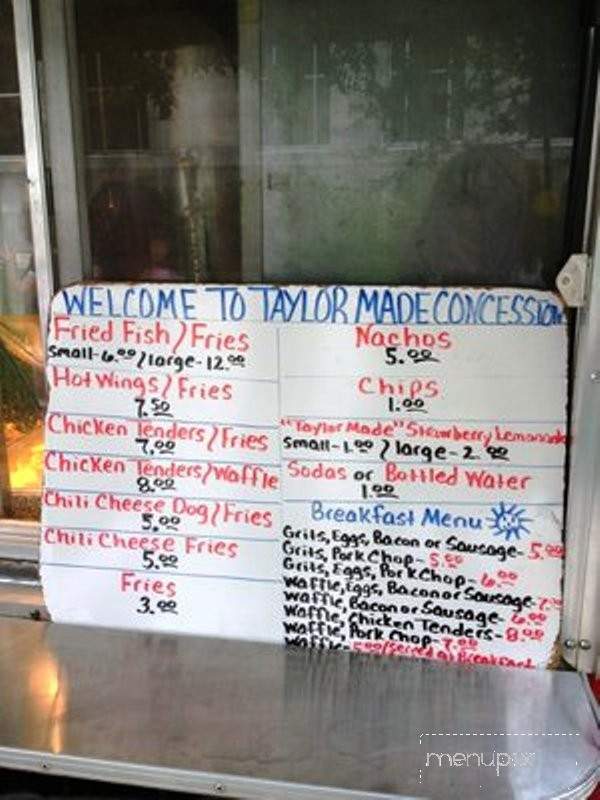 WELCOME TO TAYLOR MADE CONCESSION
Fried Fish/Fries
Small-6.00/large-12.00
Hot Wings/Fries
7.50
Chicken Tenders/Fries
7.00
Chicken Tenders/Waffle
8.00
Chili Cheese Dog/Fries
5.00
Chili Cheese Fries
5.00
Fries
3.00
Nachos
5.00
Chips
1.00
"Taylor Made" Strawberry Lemonade
Small-1.00/large-2.00
Sodas or Bottled Water
1.00
Breakfast Menu
Grits, Eggs, Bacon or Sausage-5.00
Grits, Pork Chop-5.00
Grits, Eggs, Pork Chop-6.00
Waffle, Eggs, Bacon or Sausage-7.00
Waffle, Bacon or Sausage-6.00
Waffle, Chicken Tenders-8.00
Waffle, Pork Chop-7.00
Waffle-5.00/Served at Breakfast
menupix